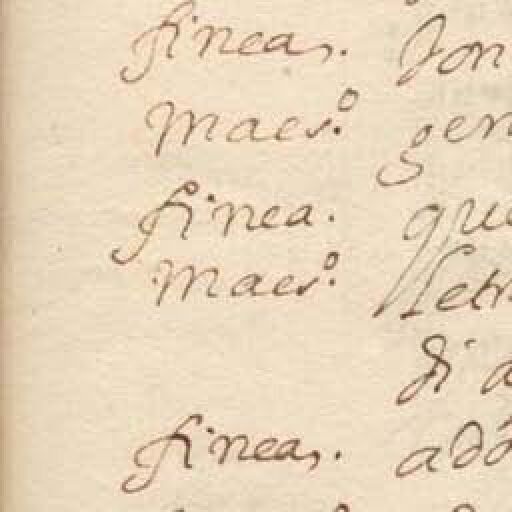 finea,. son
maes.º gen
finea. que
maes.º letr
di a
finea,. adó